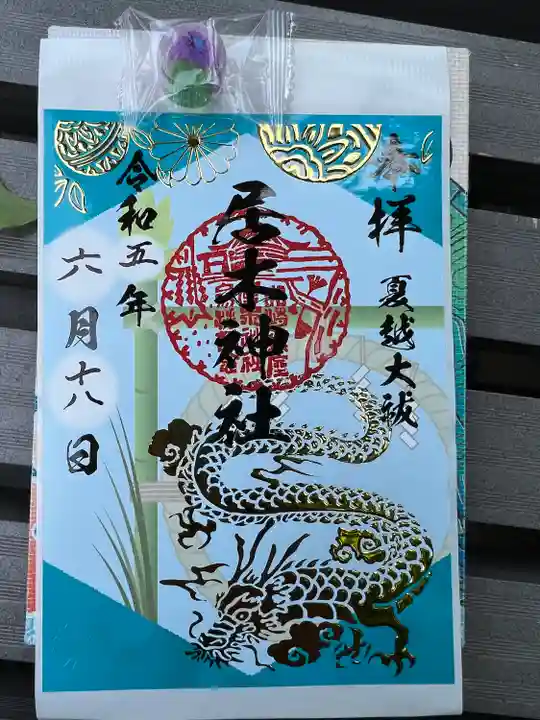 奉拝
夏越大祓
居木神社
令和五年
六月十八日